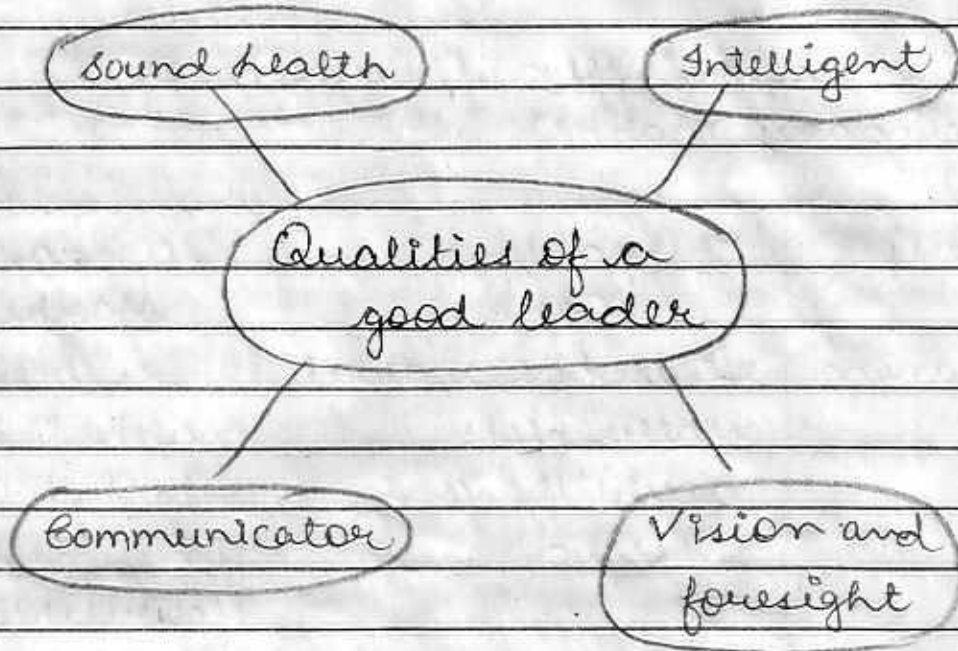 Sound health
Intelligent
Qualities of a
good leader
Communicator
Vision and
foresight